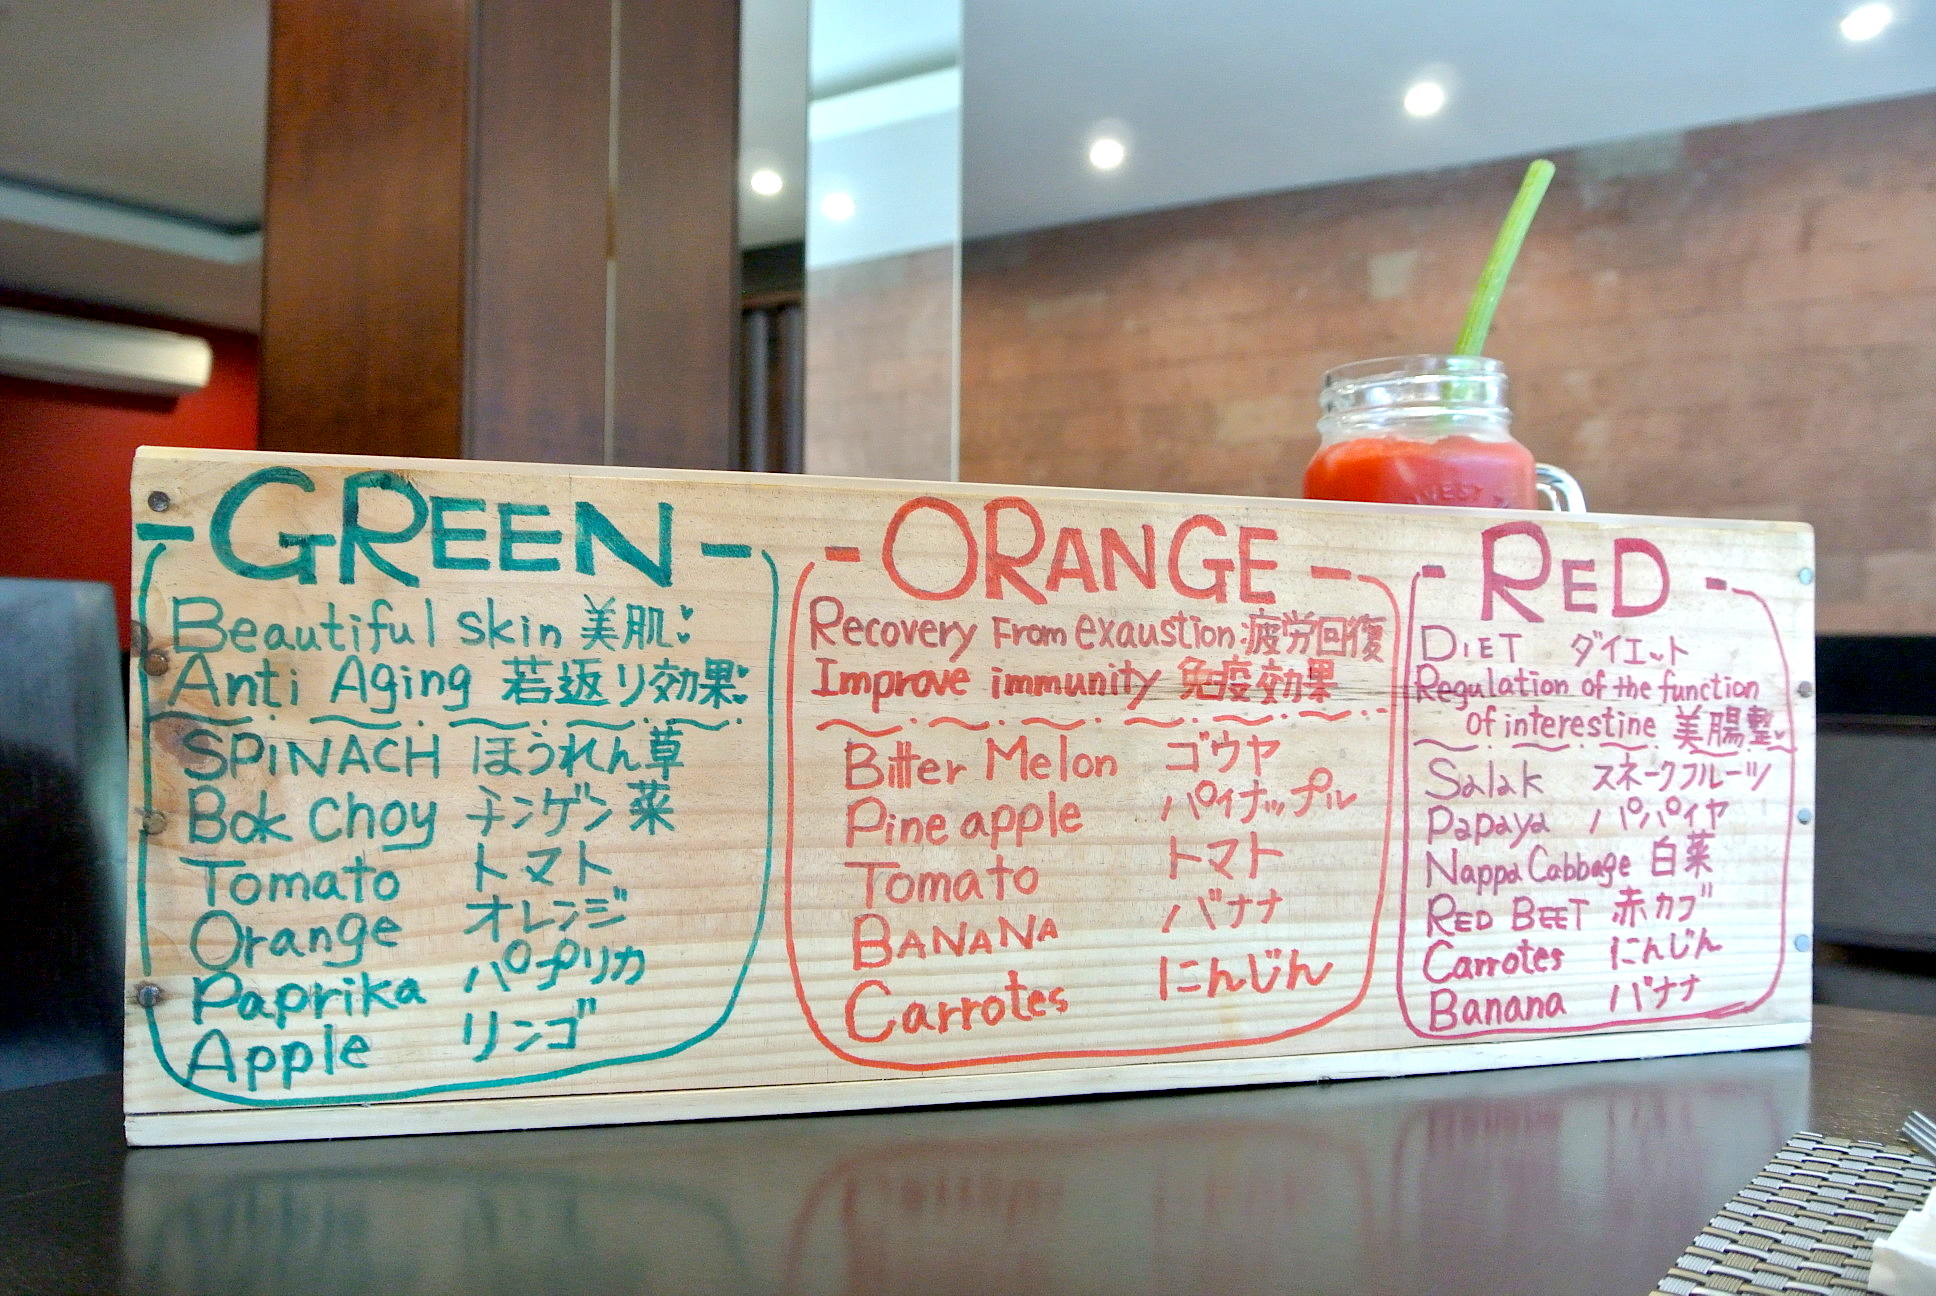 -GREEN-
Beautiful skin 美肌
Anti Aging 若返り効果
SPiNACH ほうれん草
Bok choy チンゲン菜
Tomato トマト
Orange オレンジ
Paprika パプリカ
Apple リンゴ
-ORANGE-
Recovery From exaustion 疲労回復
Improve immunity 免疫効果
Bitter Melon ゴウヤ
Pine apple パイナップル
Tomato トマト
BANANA バナナ
Carrotes にんじん
-RED-
DiET ダイエット
Regulation of the function
of interestine 美腸整
Salak スネークフルーツ
Papaya パパイヤ
Nappa Cabbage 白菜
RED BEET 赤カブ
Carrotes にんじん
Banana バナナ